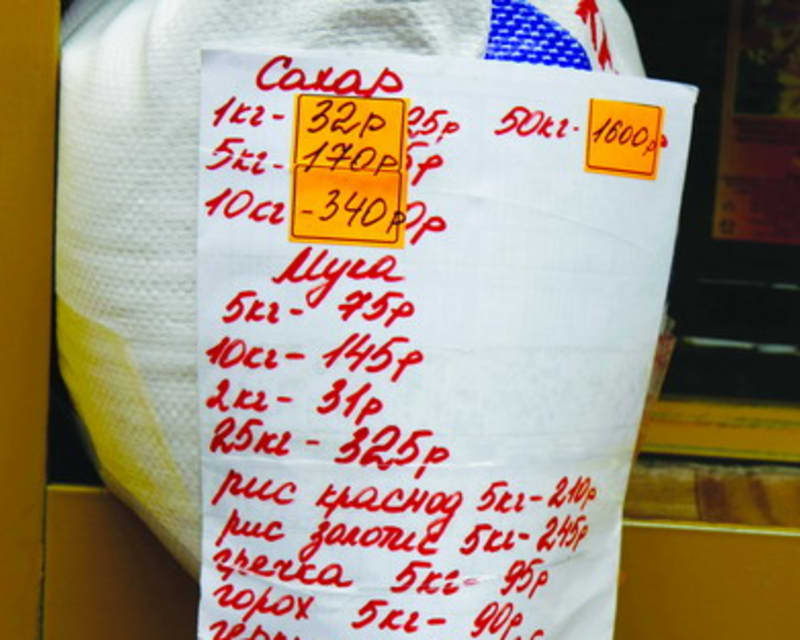 Сахар
1кг- 32р 25р 50кг- 1600р
5кг- 170р 5р
10кг - 340р 0р
Мука
5кг- 75р
10кг- 145р
2кг- 31р
25кг- 325р
рис краснод 5кг- 210р
рис золотис 5кг- 245р
гречка 5кг- 95р
горох 5кг- 90р